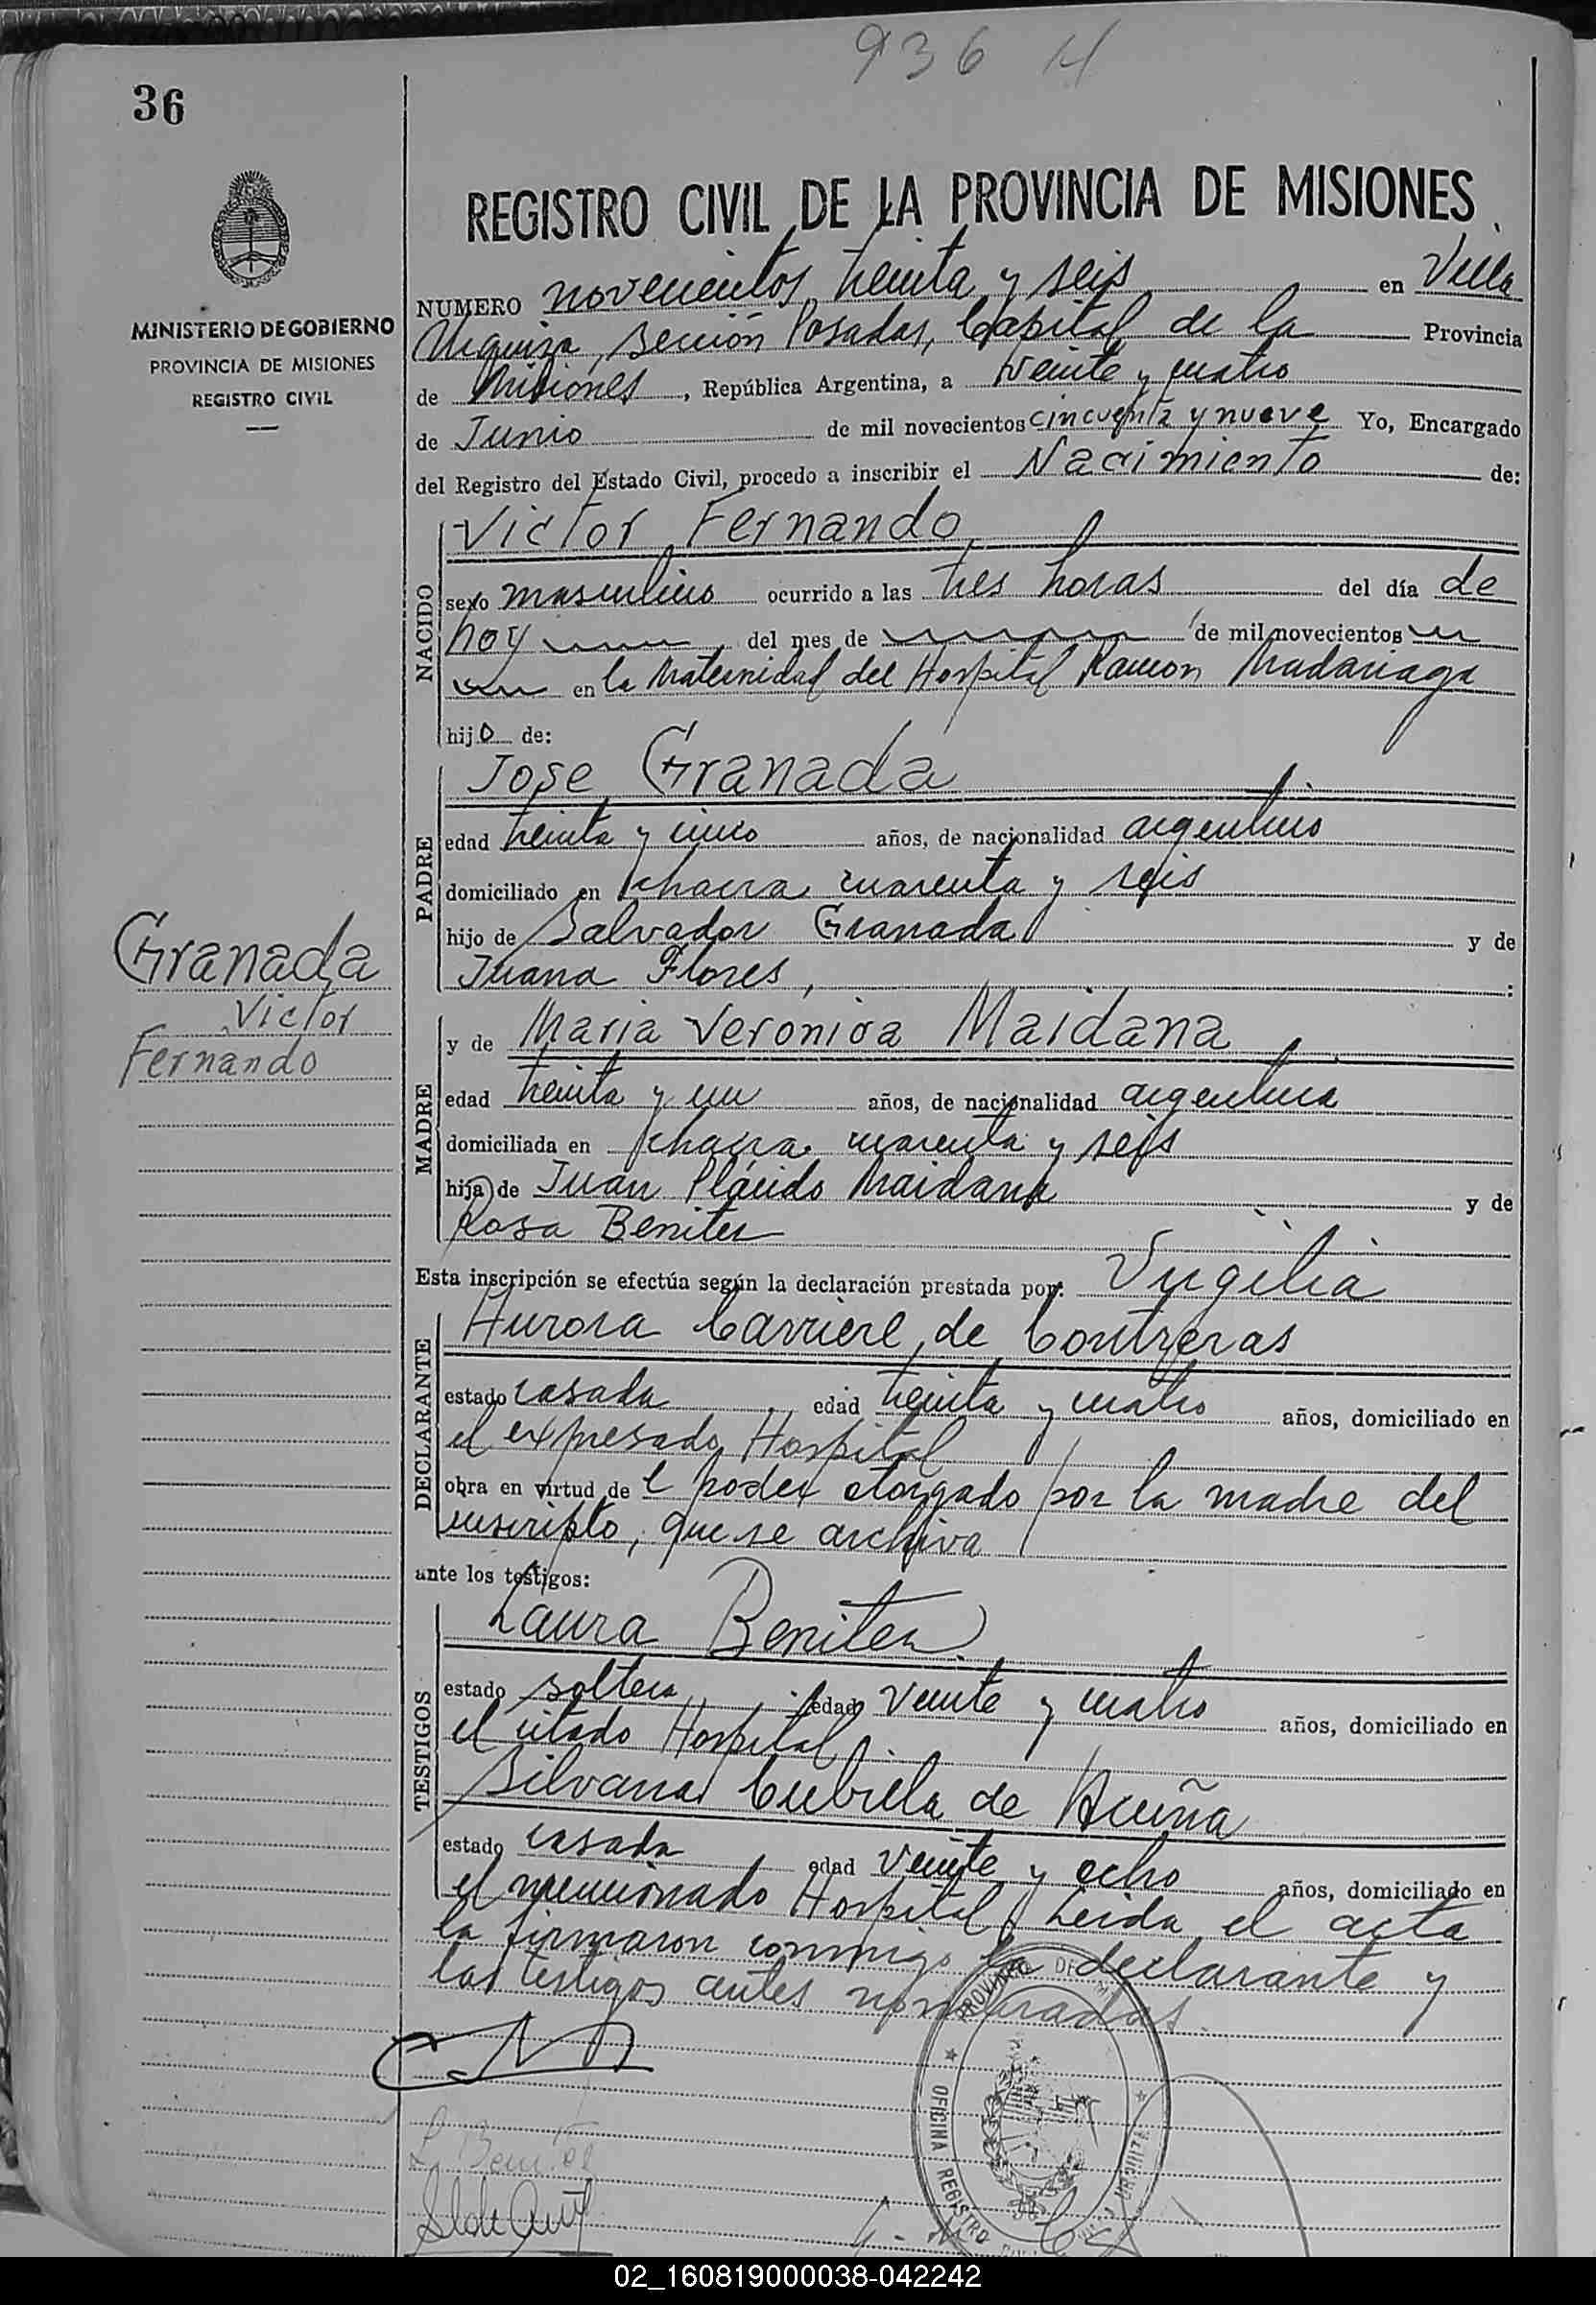 936 H
36
MINISTERIO DE GOBIERNO
PROVINCIA DE MISIONES
REGISTRO CIVIL
REGISTRO CIVIL DE LA PROVINCIA DE MISIONES
NUMERO novecientos treinta y seis en Villa
Urquiza, sección Posadas, Capital de la Provincia
de Misiones, República Argentina, a veinte y cuatro
de Junio de mil novecientos cincuenta y nueve Yo, Encargado
del Registro del Estado Civil, procedo a inscribir el Nacimiento de:
NACIDO
Victor Fernando
sexo masculino ocurrido a las tres horas del día de
hoy del mes de de mil novecientos
en la Maternidad del Hospital Ramon Madariaga
hijo de:
PADRE
Jose Granada
edad treinta y cinco años, de nacionalidad argentino
domiciliado en chacra cuarenta y seis
hijo de Salvador Granada y de
Juana Flores,
Granada
Victor
Fernando
MADRE
y de Maria Veronica Maidana
edad treinta y un años, de nacionalidad argentina
domiciliada en chacra cuarenta y seis
hija de Juan Plácido Maidana y de
Rosa Benitez
Esta inscripción se efectúa según la declaración prestada por: Virgilia
DECLARANTE
Aurora Carriere de Contreras
estado casada edad treinta y cuatro años, domiciliado en
el expresado Hospital
obra en virtud de l poder otorgado por la madre del
inscripto, que se archiva
ante los testigos:
TESTIGOS
Laura Benitez
estado soltera edad veinte y cuatro años, domiciliado en
el citado Hospital
Silvana Cubilla de Acuña
estado casada edad veinte y ocho años, domiciliado en
el mencionado Hospital Leida el acta
la firmaron conmigo la declarante y
las testigos antes nombradas.
PROVINCIA DE
OFICINA REGISTRO
URQUIZA
L Benitez
02_160819000038-042242